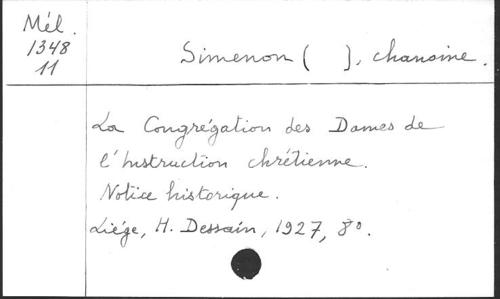 Mél.
1348
11
Simenon (   ), chanoine.
La Congrégation des Dames de
l'Instruction chrétienne.
Notice historique.
Liége, H. Dessain, 1927, 8º.